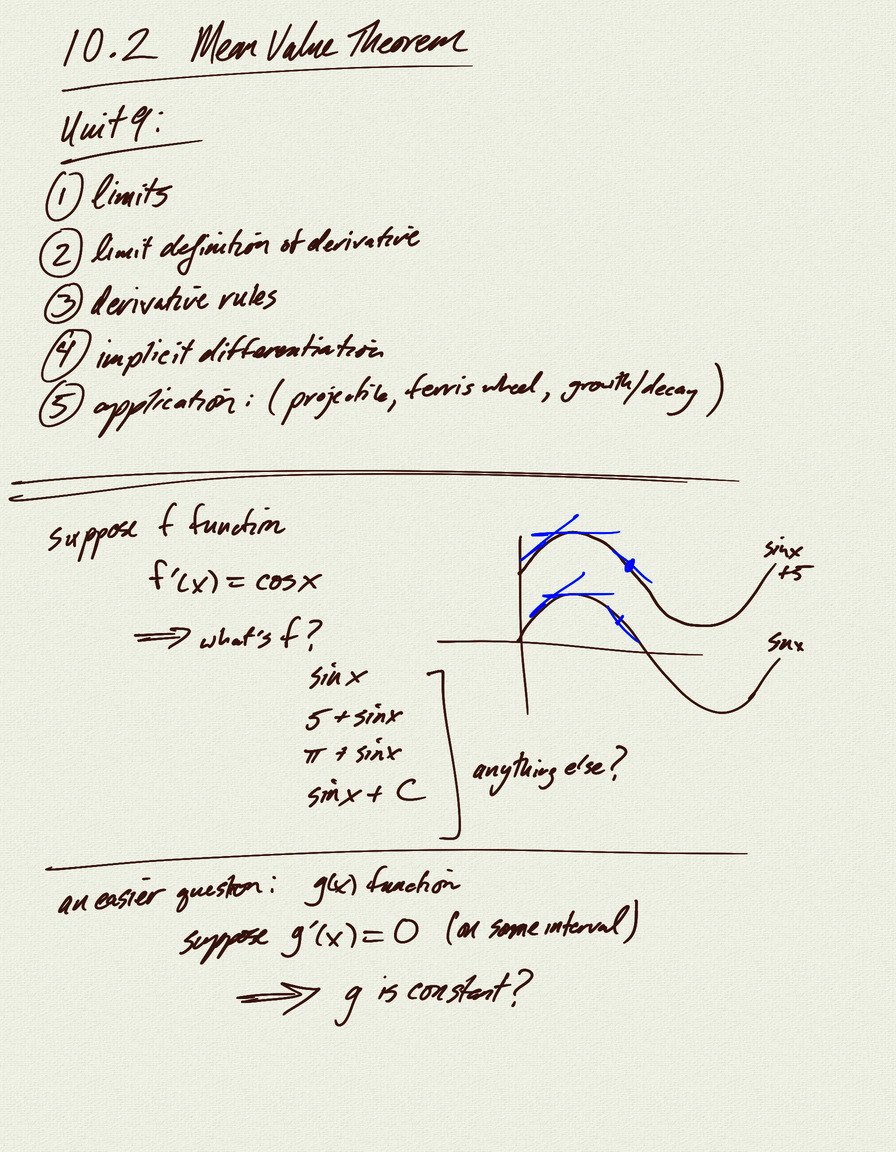 10.2 Mean Value Theorem
Unit 9:
① limits
② limit definition of derivative
③ derivative rules
④ implicit differentiation
⑤ application: (projectile, ferris wheel, growth/decay)
suppose f function
f'(x) = cos x
⟹ what's f?
sin x
5 + sin x
π + sin x
sin x + C
anything else?
sin x
+5
sin x
an easier question: g(x) function
suppose g'(x) = 0 (on some interval)
⟹ g is constant?